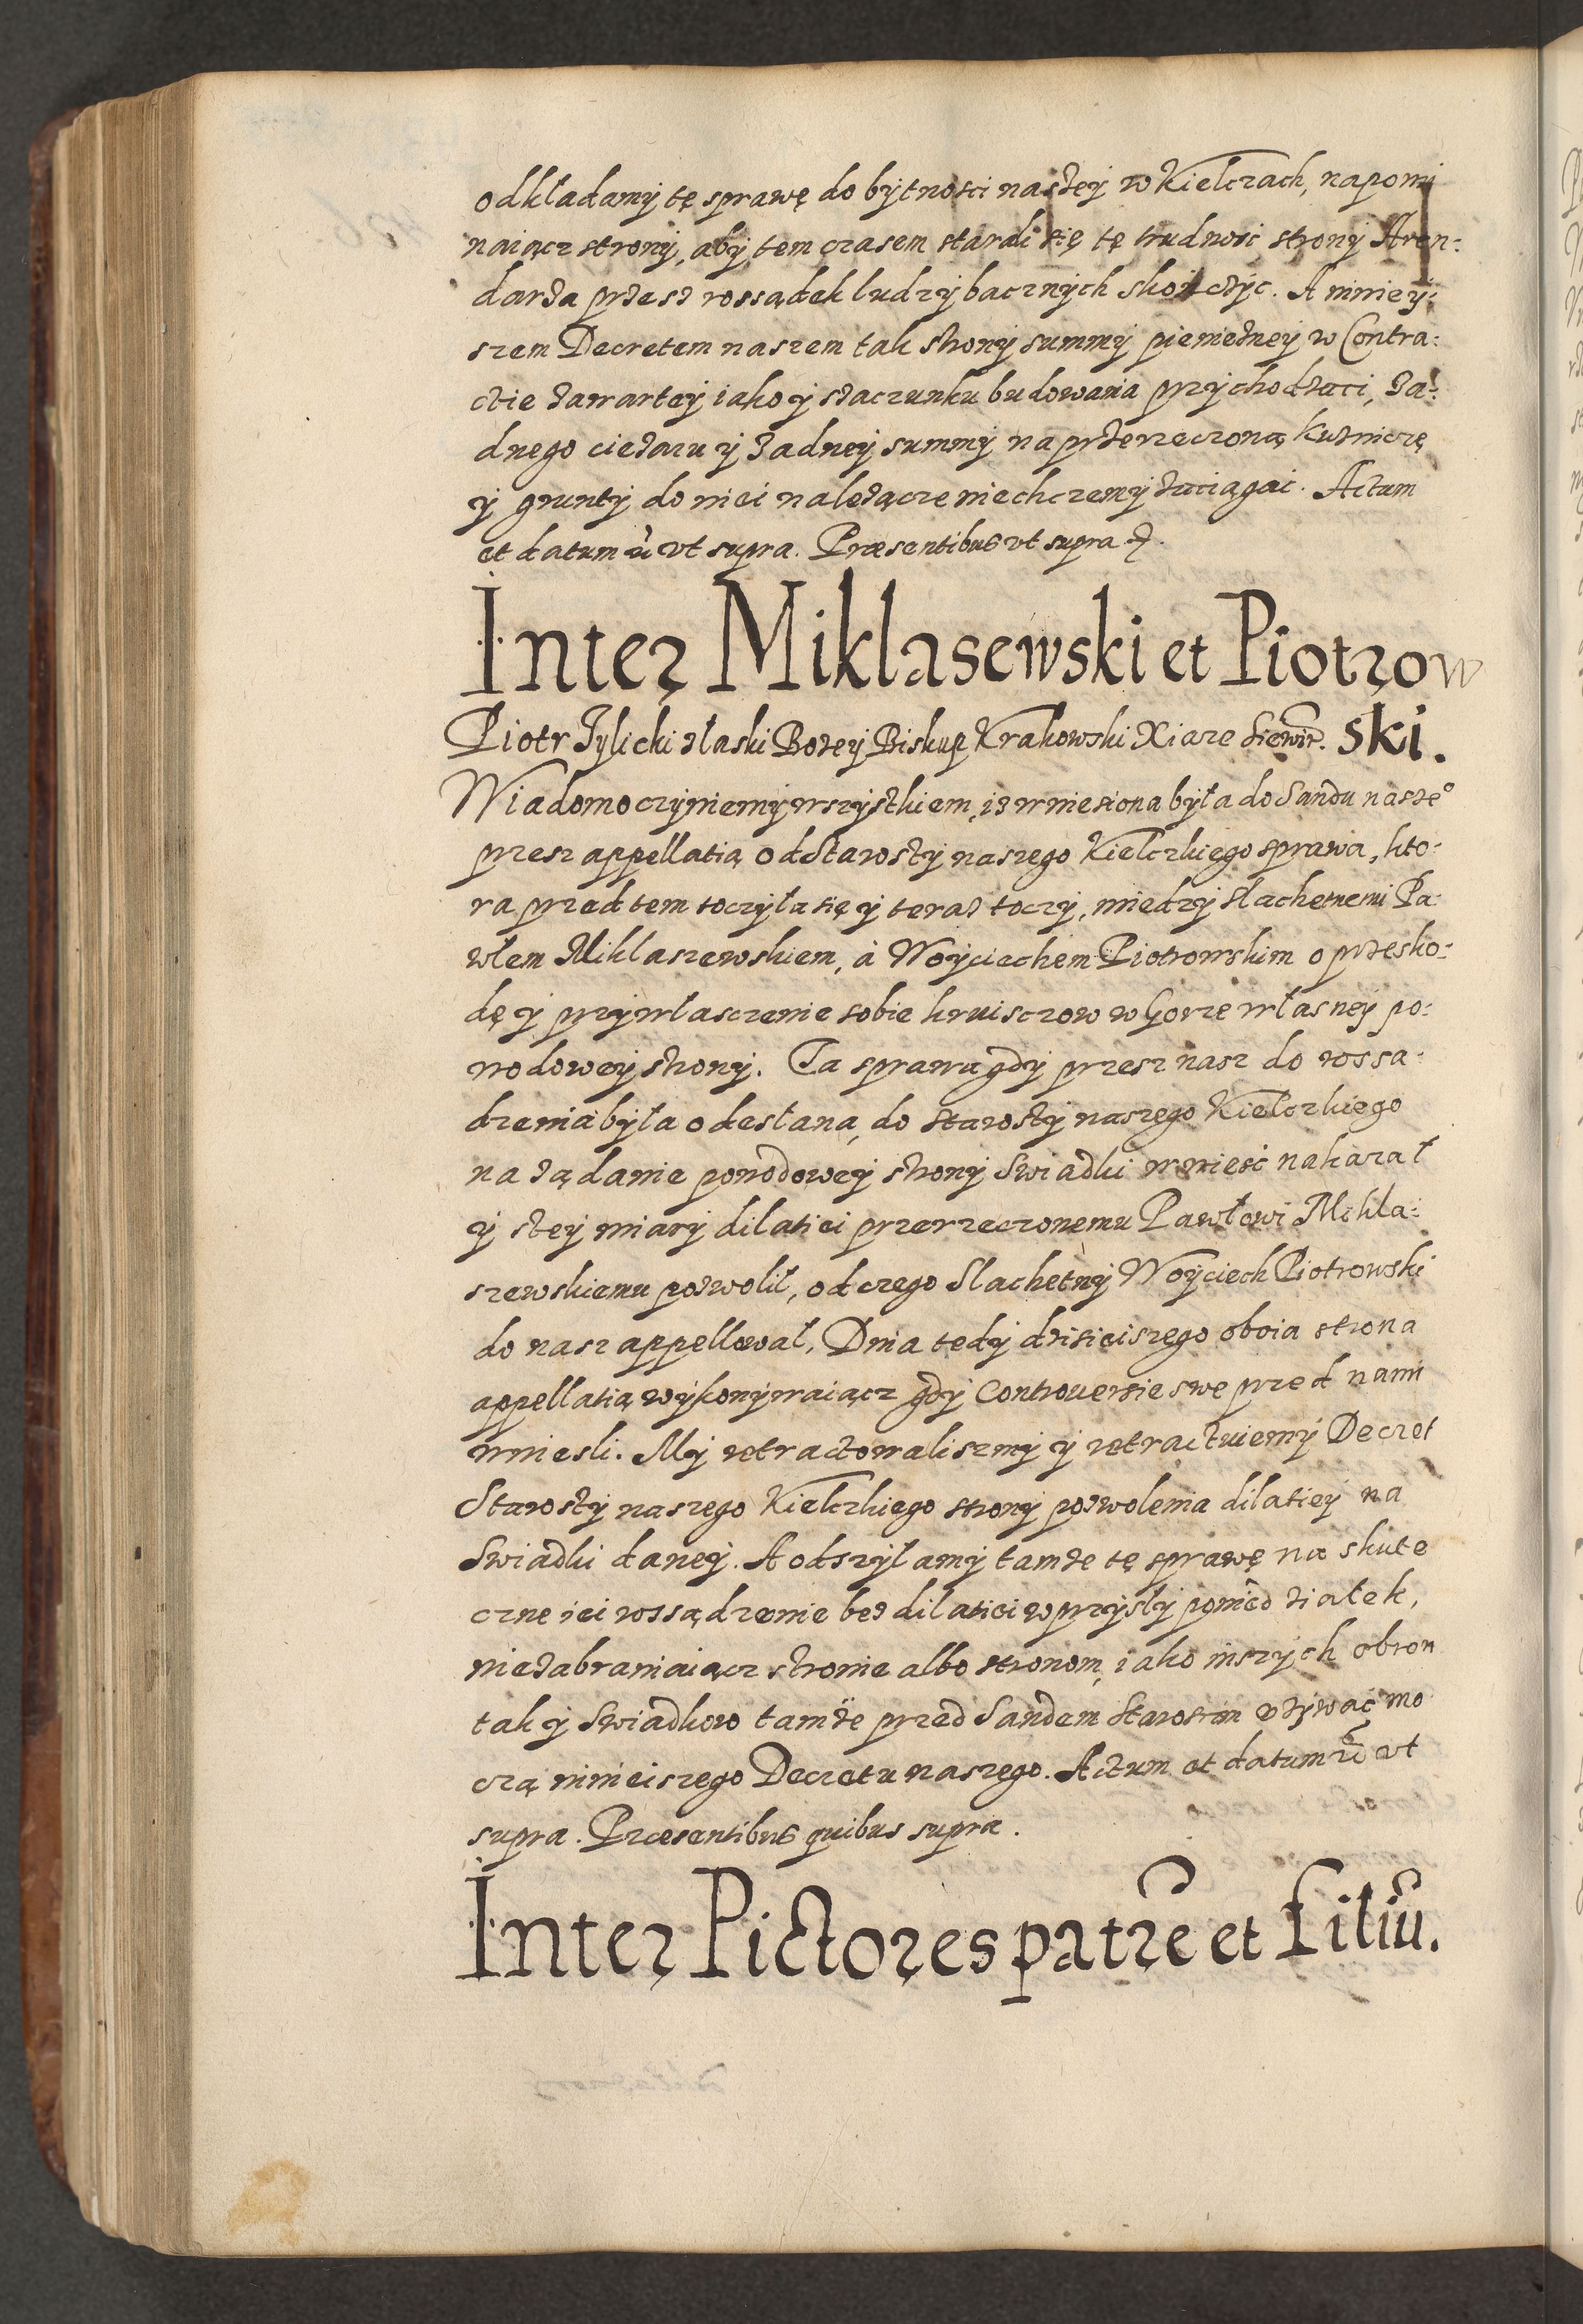 odkładamÿ tę sprawę do bÿtnosci naszeÿ w Kielczach, napomi
naiącz stronÿ, abÿ tem czasem starali się tę trudnosć stronÿ Aren:
darza przesz rossądek ludzÿ bacznÿch skończÿc. A ninieÿ:
szem Decretem naszem tak stronÿ summÿ pieniężneÿ w Contra:
ctie zawarteÿ iako ÿ szaczunku budowania przÿchodzaci, ża:
dnego ciężaru ÿ żadneÿ summÿ na przerzeczoną kuźniczę
ÿ gruntÿ do niei należącze niechczemÿ zaciągać. Actum
et datum ù vt supra. Præsentibus vt supra &.
Inter Miklasewski et Piotrow
Piotr Tÿlicki z łaski Bożeÿ Biskup Krakowski Xiaże Siewir. ski.
Wiadomo czÿniemÿ wszÿstkiem, iż wniesiona bÿła do Sandu naszeº
przesz appellatią od Starostÿ naszego Kielczkiego sprawa, kto:
ra przed tem toczÿła się ÿ teraz toczÿ, miedzÿ słachetnemi Pa:
włem Miklaszewskiem, à Woÿciechem Piotrowskim o przesko:
dę ÿ przÿwłasczenie sobie kruisczow w Gorze własneÿ po:
wodoweÿ stronÿ. Ta sprawa gdÿ przesz nasz do rossa:
dzenia bÿła odesłana, do Starostÿ naszego Kielczkiego
na żądanie powodoweÿ stronÿ Swiadki wwiesć nakazał
ÿ szteÿ miarÿ dilatiei przerzeczonemu Pawłowi Mikla:
szewskiemu pozwolił, od czego Slachetnÿ Woÿciech Piotrowski
do nasz appellował, Dnia tedÿ dzisieiszego oboia strona
appellatią wÿkonÿwaiącz gdÿ Controuersie swe przed nami
wniesli. Mÿ retractowaliszmÿ ÿ retractuiemÿ Decret
Starostÿ naszego Kielczkiego stronÿ pozwolenia dilatieÿ na
Swiadki daneÿ. A odszÿłamÿ tamże tę sprawę na skute
czne iei rossądzenie bez dilatiei w przÿsłÿ poniedziałek,
niezabraniaiącz stronie albo stronom, iako inszÿch obron
tak ÿ Swiadkow tamże przed Sandem Starostim vżÿwać mo
czą ninieiszego Decretu naszego. Actum et datum ù vt
supra. Præsentibus quibus supra.
Inter Pictores patrē et Filiū.